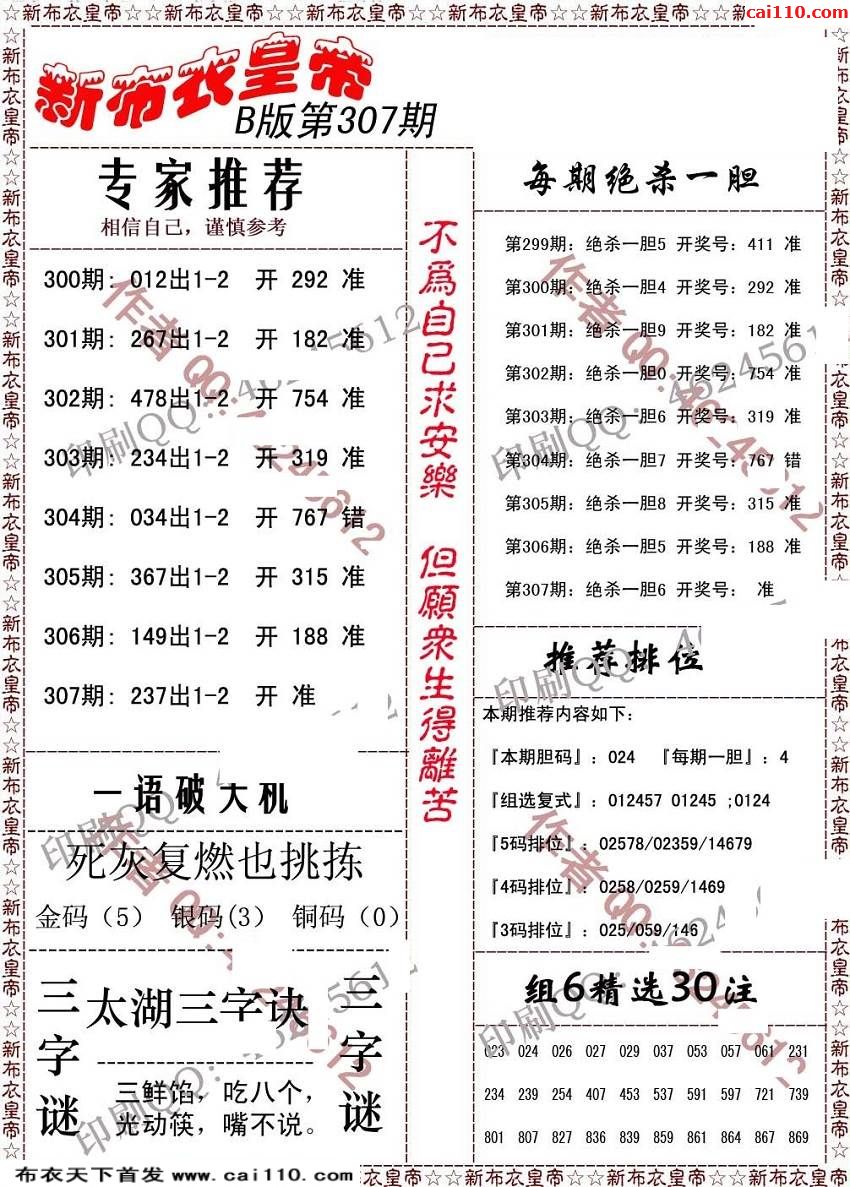 ☆☆新布衣皇帝☆☆新布衣皇帝☆☆新布衣皇帝☆☆新布衣皇帝☆☆新布衣皇帝☆☆新
cai110.com
新布衣皇帝
B版第307期
专家推荐
相信自己，谨慎参考
300期: 012出1-2 开 292 准
301期: 267出1-2 开 182 准
302期: 478出1-2 开 754 准
303期: 234出1-2 开 319 准
304期: 034出1-2 开 767 错
305期: 367出1-2 开 315 准
306期: 149出1-2 开 188 准
307期: 237出1-2 开 准
一语破天机
死灰复燃也挑拣
金码（5） 银码(3) 铜码（0）
三字谜
太湖三字诀
三鲜馅，吃八个，
光动筷，嘴不说。
三字谜
不爲自己求安樂 但願衆生得離苦
每期绝杀一胆
第299期: 绝杀一胆5 开奖号: 411 准
第300期: 绝杀一胆4 开奖号: 292 准
第301期: 绝杀一胆9 开奖号: 182 准
第302期: 绝杀一胆0 开奖号: 754 准
第303期: 绝杀一胆6 开奖号: 319 准
第304期: 绝杀一胆7 开奖号: 767 错
第305期: 绝杀一胆8 开奖号: 315 准
第306期: 绝杀一胆5 开奖号: 188 准
第307期: 绝杀一胆6 开奖号: 准
推荐排位
本期推荐内容如下:
『本期胆码』: 024 『每期一胆』: 4
『组选复式』: 012457 01245 ;0124
『5码排位』: 02578/02359/14679
『4码排位』: 0258/0259/1469
『3码排位』: 025/059/146
组6精选30注
023 024 026 027 029 037 053 057 061 231
234 239 254 257 407 453 537 591 597 721 739
801 807 827 832 836 839 859 861 864 867 869
布衣天下首发 www.cai110.com
☆新布衣皇帝☆☆新布衣皇帝☆☆新布衣皇帝☆☆新布衣皇帝☆